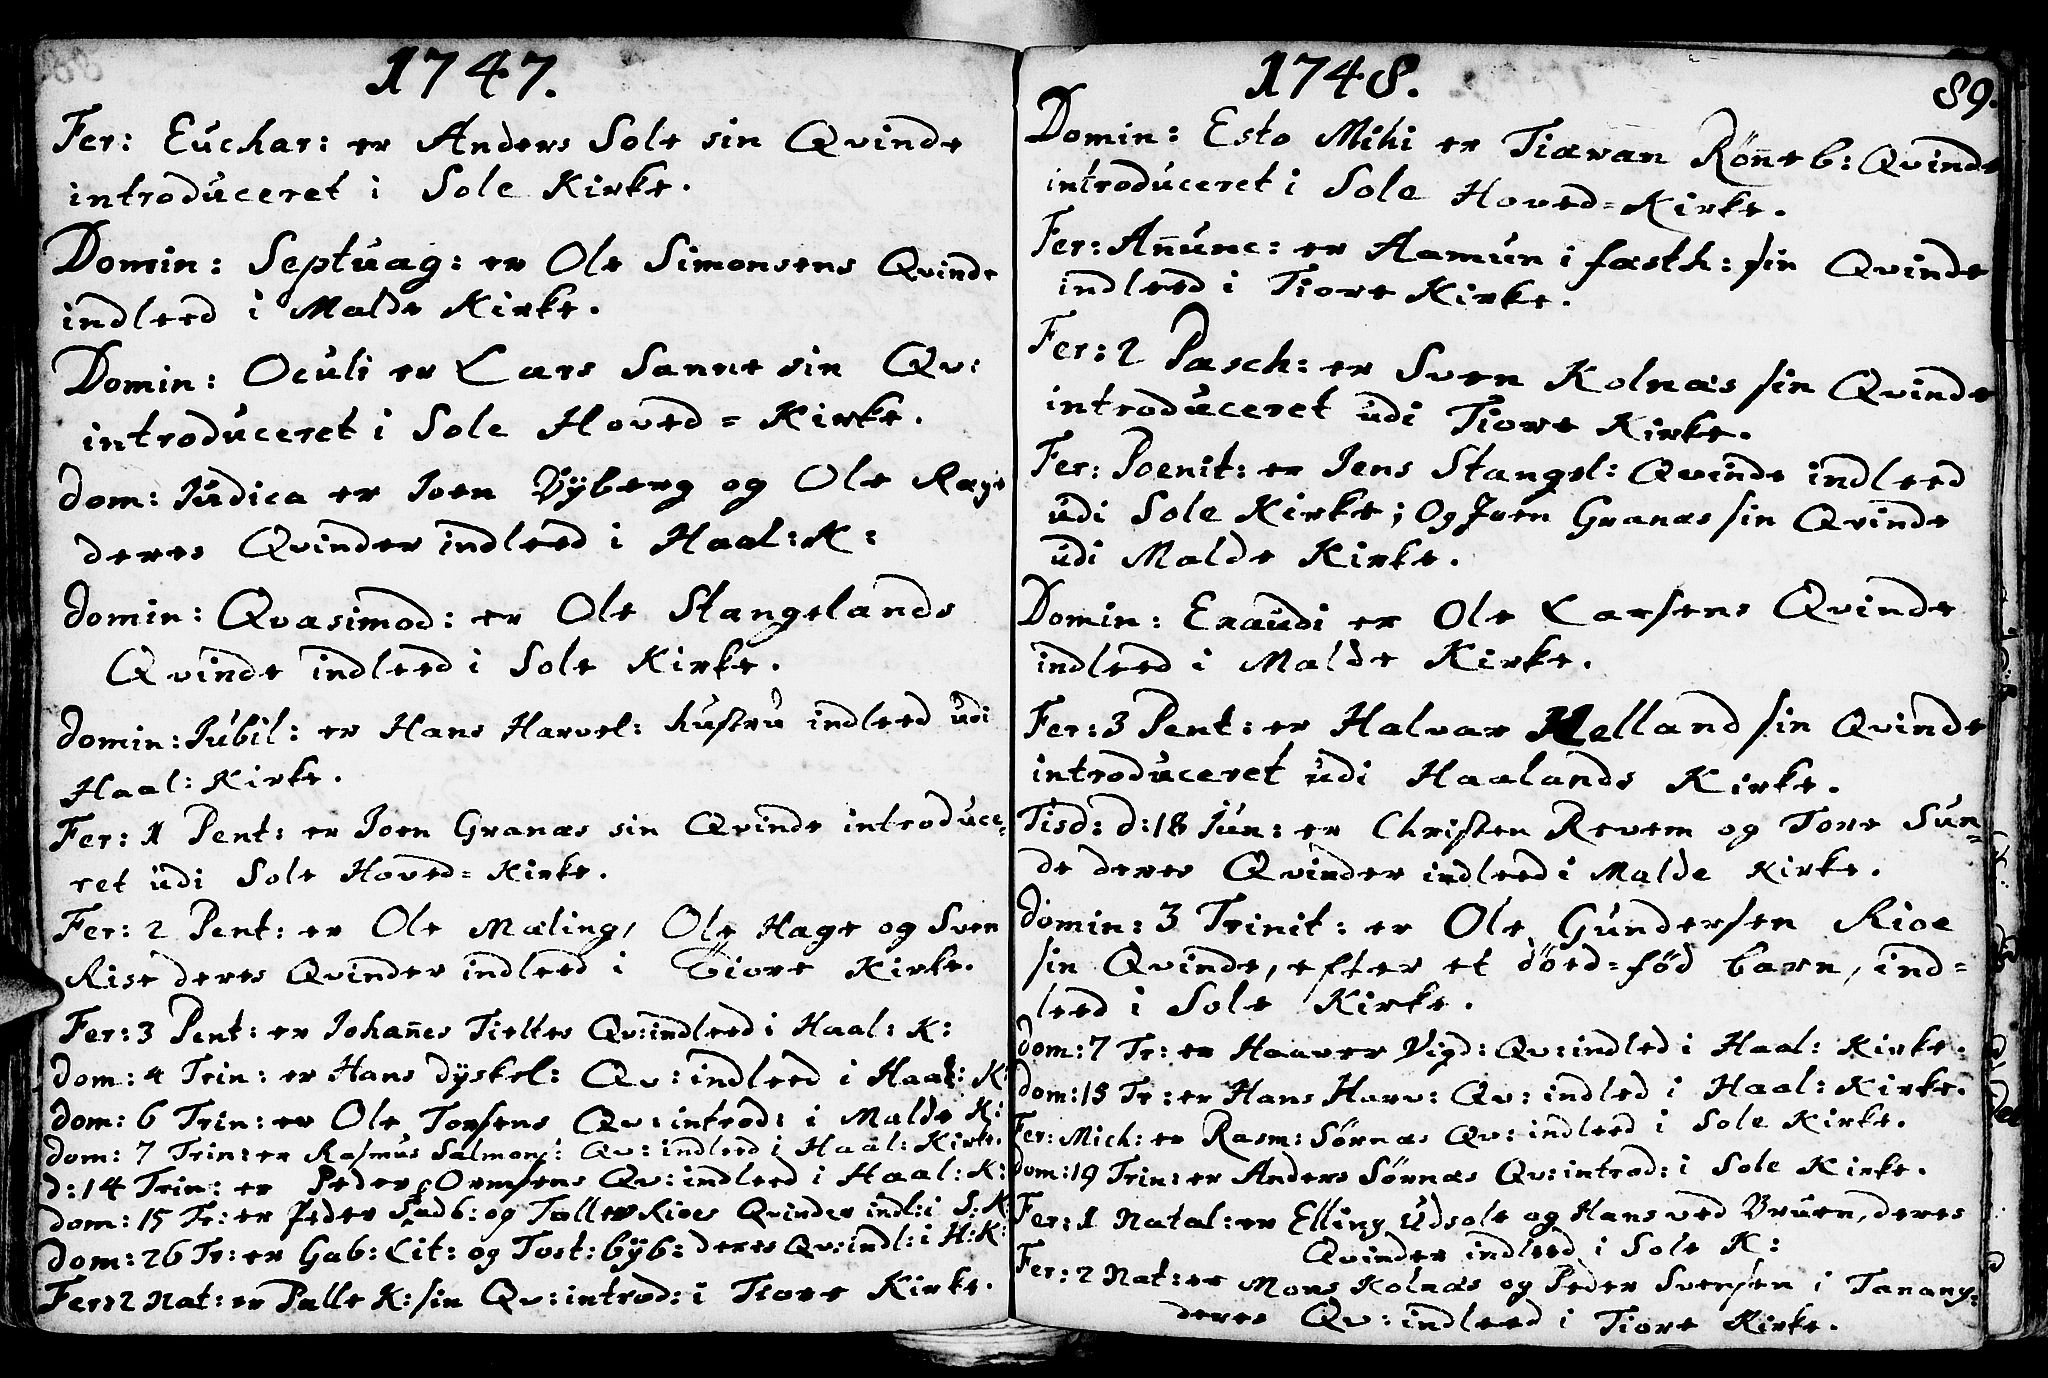 1747.
Fer: Euchar: er Anders Sole sin Qvinde
introduceret i Sole Kirke.
Domin: Septuag: er Ole Simonsens Qvinde
indleed i Malde Kirke.
Domin: Oculi er Lars Sanne sin Qv:
introduceret i Sole Hoved=Kirke.
dom: Judica er Joen Vÿberg og Ole Rege
deres Qvinder indleed i Haal: K:
domin: Qvasimod: er Ole Stangelands
Qvinde indleed i Sole Kirke.
domin: Jubil: er Hans Harvel: hustru indleed udi
Haal: Kirke.
Fer: 1 Pent: er Joen Granæs sin Qvinde introduce-
ret udi Sole Hoved=Kirke.
Fer: 2 Pent: er Ole Mæling, Ole Hage og Sven
Rise deres Qvinder indleed i Tiore Kirke.
Fer: 3 Pent: er Johañes Tieltes Qv: indleed i Haal: K:
dom: 4 Trin: er Hans dÿskel: Qv: indleed i Haal: K:
dom: 6 Trin: er Ole Torsens Qv: introd: i Malde K:
dom: 7 Trin: er Rasmus Salmons: Qv: indleed i Haal: Kirke.
d: 14 Trin: er Peder Ormsens Qv: indleed i Haal: K:
dom: 15 Tr: er Peder Sudb: og Taller Rioes Qvinder indl: i S: K
dom: 26 Tr: er Gab: Lit: og Tost: bÿb: deres Qv: indl: i H: K:
Fer: 2 Nat: er Palle K: sin Qv: introd: i Tiore Kirke.
1748.
89.
Domin: Esto Mihi er Tiæran Röñeb: Qvinde
introduceret i Sole Hoved=Kirke.
Fer: Añunc: er Aamun i fæsth: sin Qvinde
indleed i Tiore Kirke.
Fer: 2 Pasch: er Sven Kolnæs sin Qvinde
introduceret udi Tiore Kirke.
Fer: Poenit: er Jens Stangel: Qvinde indleed
udi Sole Kirke; Og Joen Granæs sin Qvinde
udi Malde Kirke.
Domin: Exaudi er Ole Larsens Qvinde
indleed i Malde Kirke.
Fer: 3 Pent: er Halvar Helland sin Qvinde
introduceret udi Haalands Kirke.
Tisd: d: 18 Jun: er Christen Revem og Tore Sun-
de deres Qvinder indleed i Malde Kirke.
domin: 3 Trinit: er Ole Gundersen Rioe
sin Qvinde, efter et döed=fød barn, ind=
leed i Sole Kirke.
dom: 7 Tr: er Haaver Vigd: Qv: indled i Haal: Kirke.
dom: 15 Tr: er Hans Harv: Qv: indled i Haal: Kirke.
Fer: Mich: er Rasm: Sørnæs Qv: indleed i Sole Kirke.
dom: 19 Trin: er Anders Sørnæs Qv: introd: i Sole Kirke.
Fer: 1 Natal: er Elling Udsole og Hans ved Bruen, deres
Qvinder indleed i Sole K:
Fer: 2 Nat: er Mons Kolnæs og Peder Svensen i Tanang:
deres Qv: indleed i Tiore Kirke.